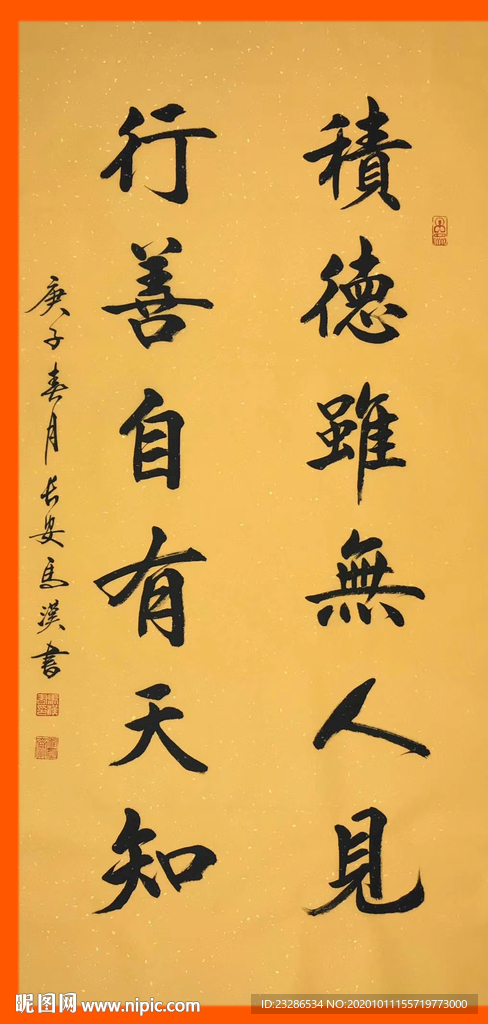 積德雖無人見
行善自有天知
庚子春月长安馬漢書
昵图网 www.nipic.com
ID:23286534 NO:20201011155719773000